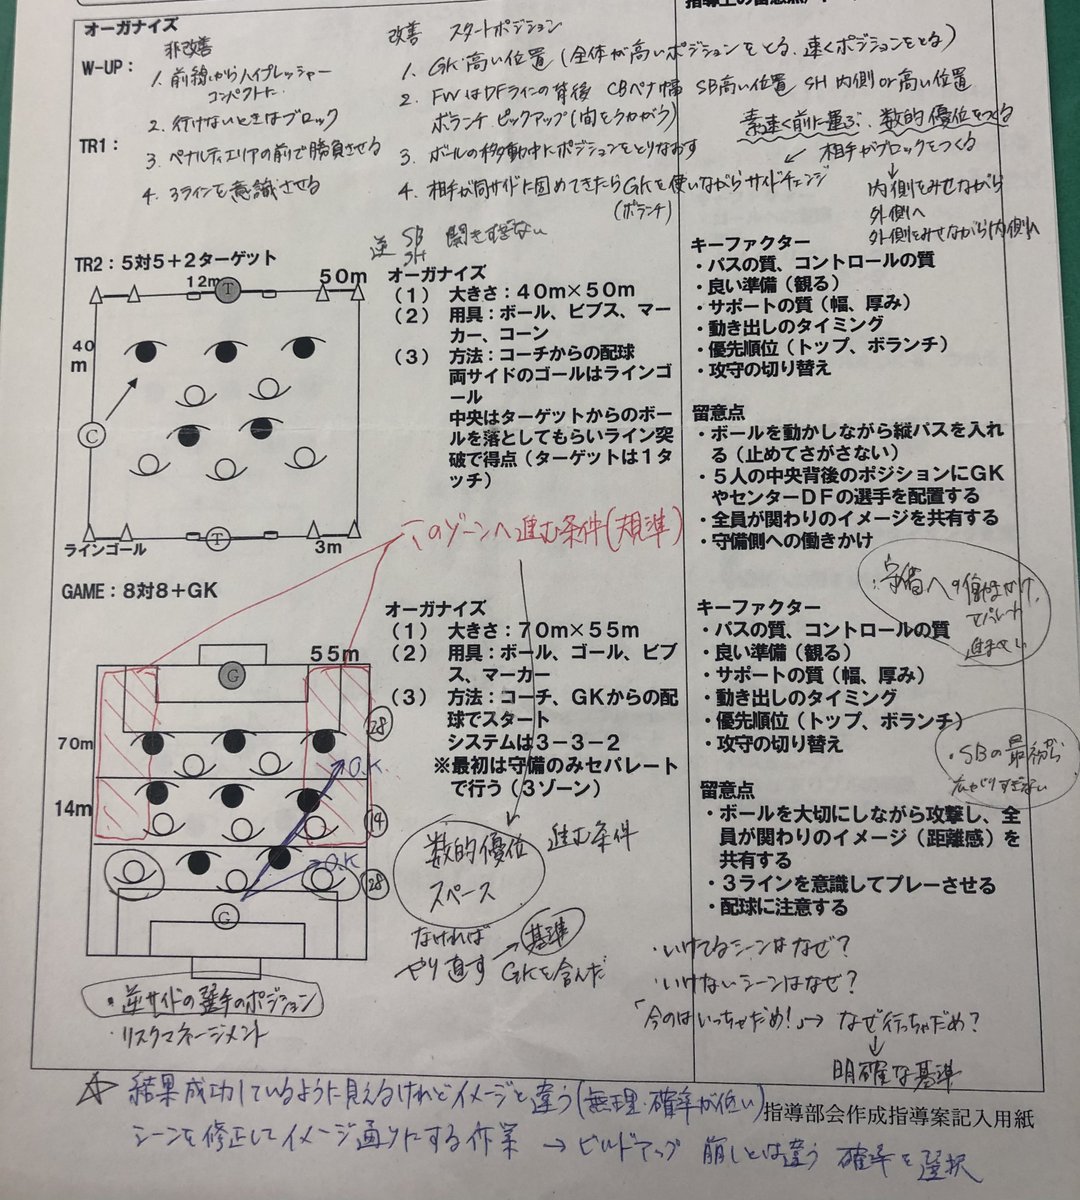 オーガナイズ
非改善
改善 スタートポジション
W-UP：
1. 前線からハイプレッシャー
コンパクトに
2. 行けないときはブロック
TR1：
3. ペナルティエリアの前で勝負させる
4. 3ラインを意識させる
1. GK高い位置(全体が高いポジションをとる、速くポジションをとる)
2. FWはDFラインの背後 CBペナ幅 SB高い位置 SH 内側or高い位置
ボランチ ピックアップ(間をうかがう)
3. ボールの移動中にポジションをとりなおす
4. 相手が同サイドに固めてきたらGKを使いながらサイドチェンジ
(ボランチ)
逆 SB 開きすぎない
SH
素速く前に運ぶ、数的優位をつくる
相手がブロックをつくる
内側をみせながら
外側へ
外側をみせながら内側へ
TR2：５対５＋２ターゲット
12m
５０m
４０
m
T
C
T
ラインゴール
３m
オーガナイズ
（１） 大きさ：４０m×５０m
（２） 用具：ボール、ビブス、マー
カー、コーン
（３） 方法：コーチからの配球
両サイドのゴールはラインゴ
ール
中央はターゲットからのボー
ルを落としてもらいライン突
破で得点（ターゲットは１タ
ッチ）
キーファクター
・パスの質、コントロールの質
・良い準備（観る）
・サポートの質（幅、厚み）
・動き出しのタイミング
・優先順位（トップ、ボランチ）
・攻守の切り替え
留意点
・ボールを動かしながら縦パスを入れ
る（止めてさがさない）
・５人の中央背後のポジションにＧＫ
やセンターＤＦの選手を配置する
・全員が関わりのイメージを共有する
・守備側への働きかけ
このゾーンへ進む条件(規準)
・守備への働きかけ、
セパレート
進ませない
GAME：８対８＋GK
５５m
G
70m
14m
28
14
28
O.K.
O.K
G
オーガナイズ
（１） 大きさ：７０m×５５m
（２） 用具：ボール、ゴール、ビブ
ス、マーカー
（３） 方法：コーチ、ＧＫからの配
球でスタート
システムは３－３－２
※最初は守備のみセパレート
で行う（３ゾーン）
キーファクター
・パスの質、コントロールの質
・良い準備（観る）
・サポートの質（幅、厚み）
・動き出しのタイミング
・優先順位（トップ、ボランチ）
・攻守の切り替え
・SBの最初から
広がりすぎない
留意点
・ボールを大切にしながら攻撃し、全
員が関わりのイメージ（距離感）を
共有する
・３ラインを意識してプレーさせる
・配球に注意する
数的優位 進む条件
スペース
なければ
やり直す → 基準
GKを含んだ
・逆サイドの選手のポジション
・リスクマネージメント
・いけてるシーンはなぜ？
・いけないシーンはなぜ？
「今のはいっちゃだめ！」→ なぜ行っちゃだめ？
明確な基準
☆ 結果成功しているように見えるけれどイメージと違う(無理・確率が低い)
指導部会作成指導案記入用紙
シーンを修正してイメージ通りにする作業 → ビルドアップ 崩しとは違う 確率を選択